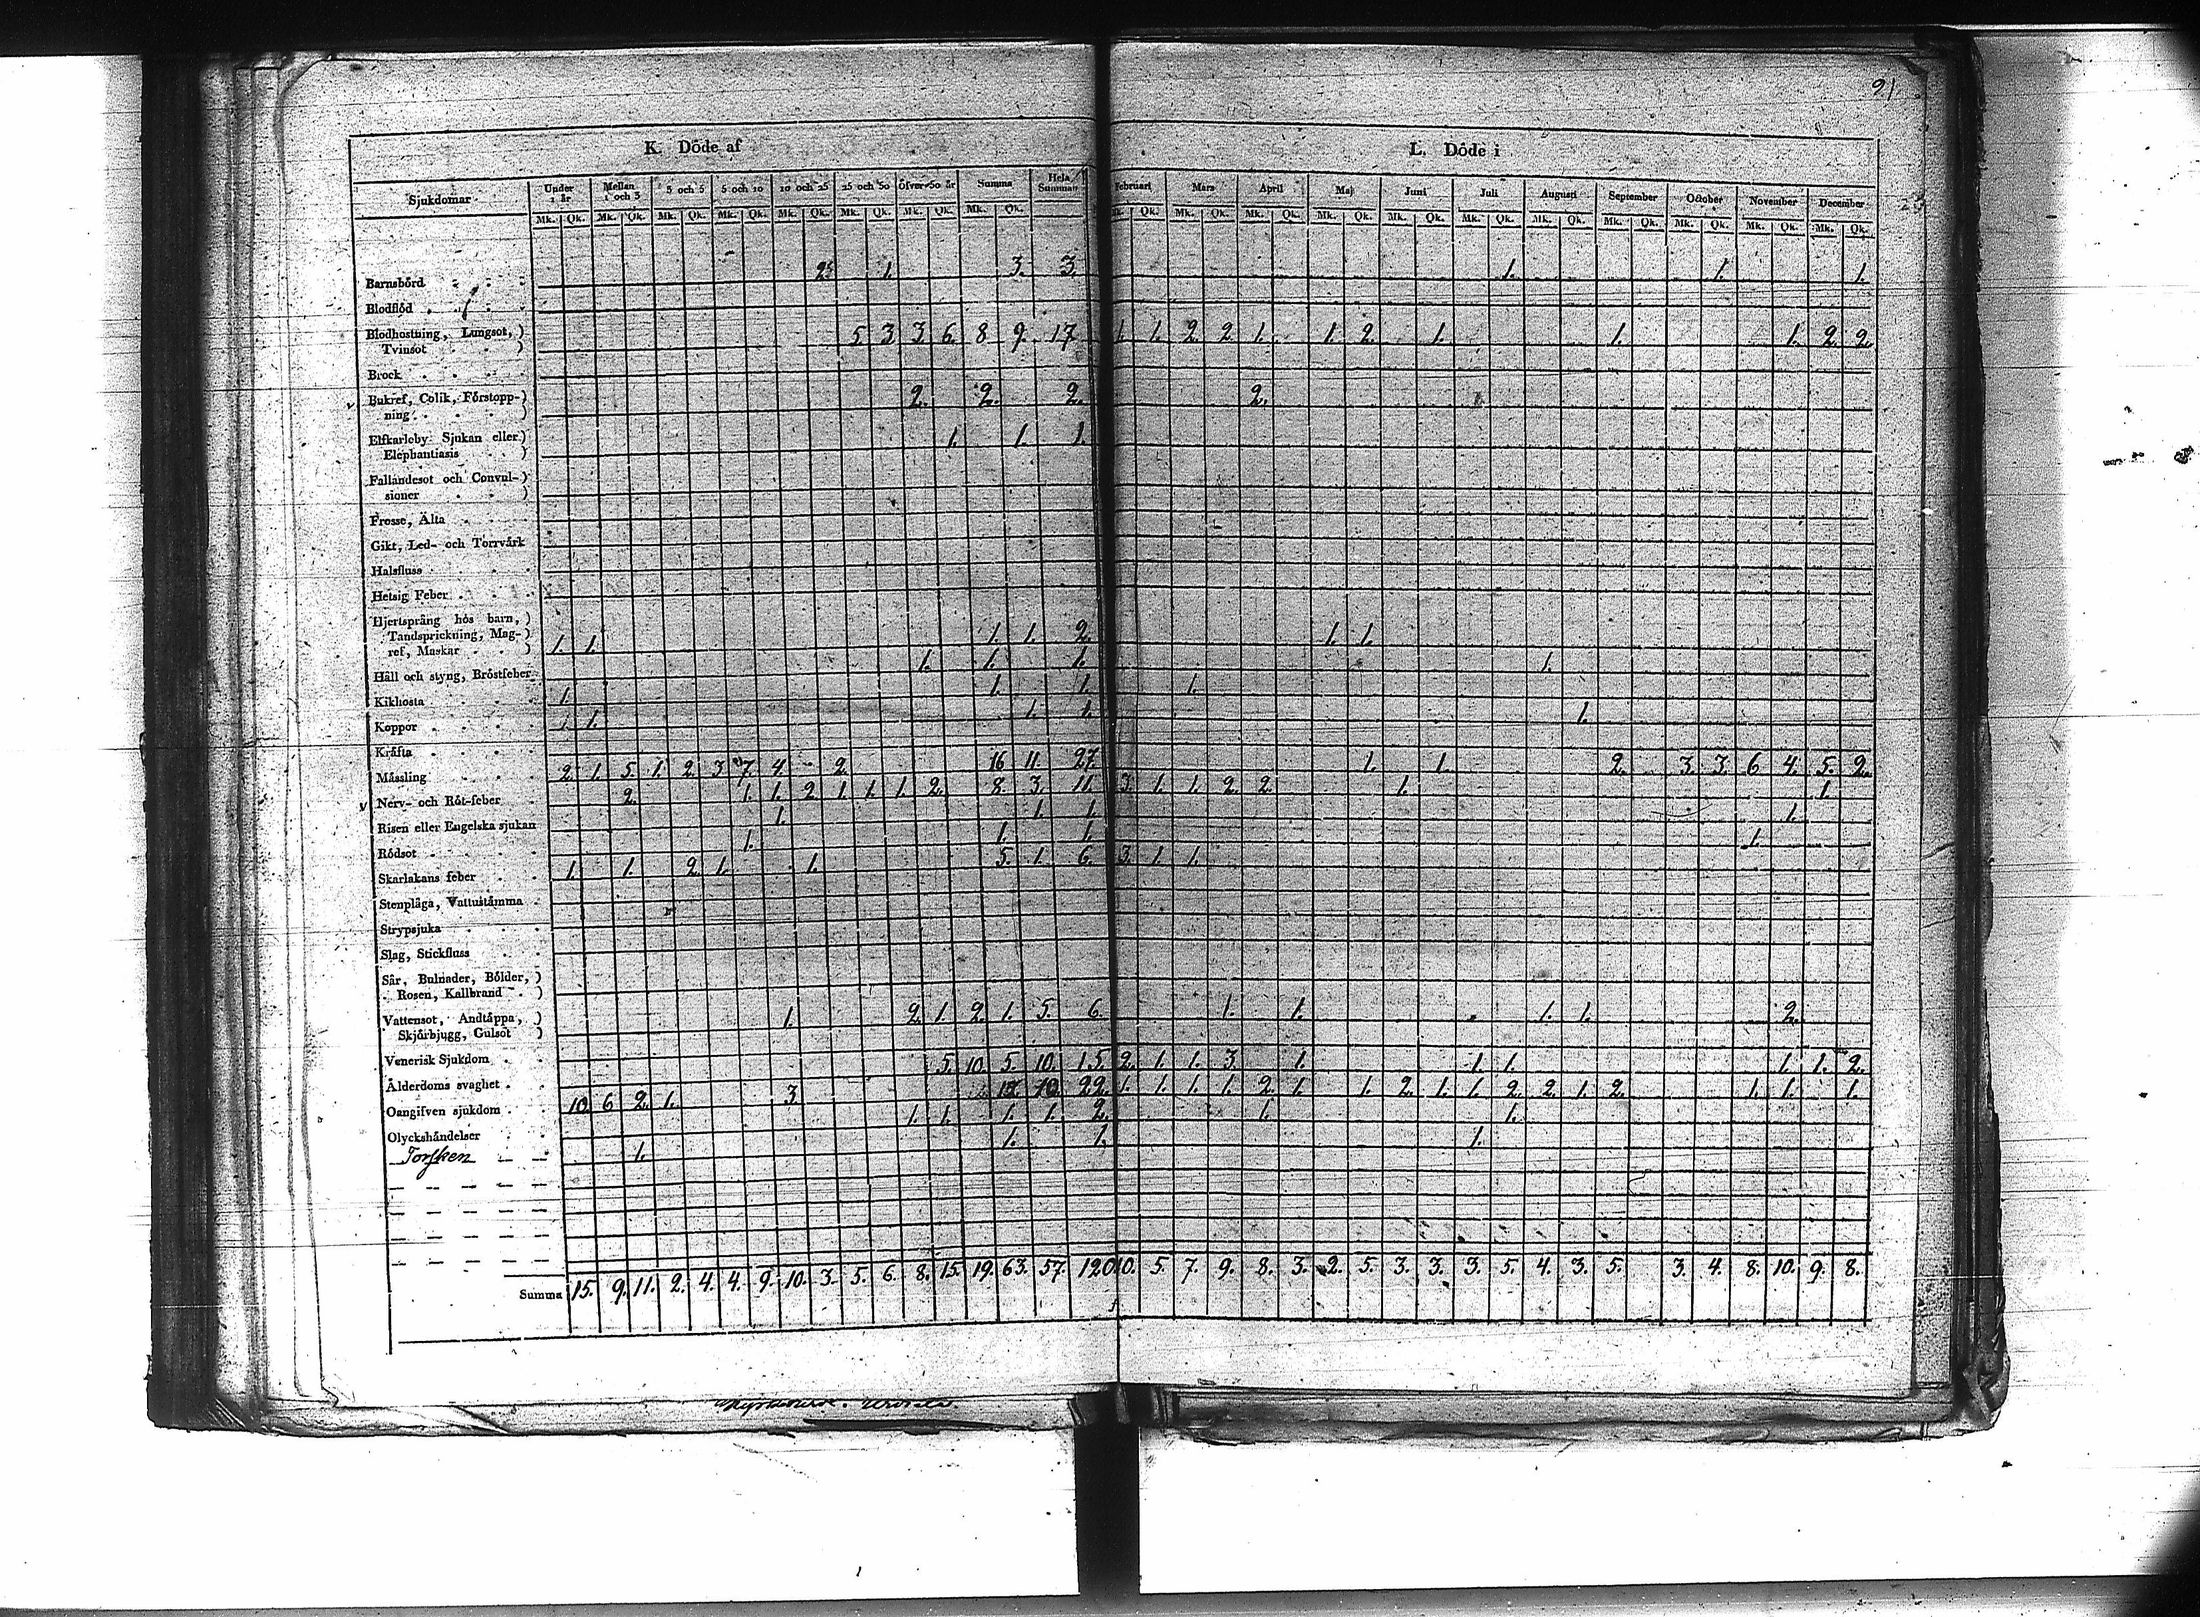 91
K. Döde af
L. Döde i
Sjukdomar Under 1 år Mellan 1 och 3 3 och 5 5 och 10 10 och 25 25 och 50 Öfver 50 år Summa Hela Summan Februari Mars April Maj Juni Juli Augusti September October November December
Mk. Qk. Mk. Qk. Mk. Qk. Mk. Qk. Mk. Qk. Mk. Qk. Mk. Qk. Mk. Qk. Mk. Qk. Mk. Qk. Mk. Qk. Mk. Qk. Mk. Qk. Mk. Qk. Mk. Qk. Mk. Qk. Mk. Qk. Mk. Qk. Mk. Qk.
Barnsbörd 2 1. 3. 3. 1. 1. 1.
Blodflöd
Blodhostning, Lungsot, )
Tvinsot ) 5 3 3 6. 8 9. 17 1. 1. 2. 2. 1. 1. 2. 1. 1. 1. 2. 2.
Brock
Bukref, Colik, Förstopp- )
ning ) 2. 2. 2. 2.
Elfkarleby Sjukan eller )
Elephantiasis ) 1. 1. 1.
Fallandesot och Convul- )
sioner )
Frosse, Älta
Gikt, Led- och Torrvärk
Halsfluss
Hetsig Feber
Hjertsprång hos barn, )
Tandsprickning, Mag- )
ref, Maskar ) 1. 1. 1. 1. 2. 1. 1.
Håll och styng, Bröstfeber 1. 1. 1. 1.
Kikhosta 1. 1. 1. 1.
Koppor 1. 1. 1. 1.
Kräfta
Mässling 2. 1. 5. 1. 2. 3. 7. 4. 2. 16 11. 27. 1. 1. 2. 3. 3. 6 4. 5. 2.
Nerv- och Röt-feber 2. 1. 1. 2. 1. 1. 1. 2. 8. 3. 11. 3. 1. 1. 2. 2. 1. 1.
Risen eller Engelska sjukan 1. 1. 1. 1.
Rödsot 1. 1. 1. 1.
Skarlakans feber 1. 1. 2. 1. 1. 5. 1. 6. 3. 1. 1.
Stenplåga, Vattustämma
Strypsjuka
Slag, Stickfluss
Sår, Bulnader, Bölder, )
Rosen, Kallbrand )
Vattensot, Andtäppa, )
Skjörbjugg, Gulsot ) 1. 2. 1. 2. 1. 5. 6. 1. 1. 1. 1. 2.
Venerisk Sjukdom
Ålderdoms svaghet 5. 10. 5. 10. 15. 2. 1. 1. 3. 1. 1. 1. 1. 1. 2.
Oangifven sjukdom 10. 6 2. 1. 3. 12. 10. 22. 1. 1. 1. 1. 2. 1. 1. 2. 1. 1. 2. 2. 1. 2. 1. 1. 1.
Olyckshändelser 1. 1. 1. 1. 2. 1. 1.
Torsken 1. 1. 1. 1.
Summa 15. 9. 11. 2. 4. 4. 9. 10. 3. 5. 6. 8. 15. 19. 63. 57. 120 10. 5. 7. 9. 8. 3. 2. 5. 3. 3. 3. 5. 4. 3. 5. 3. 4. 8. 10. 9. 8.